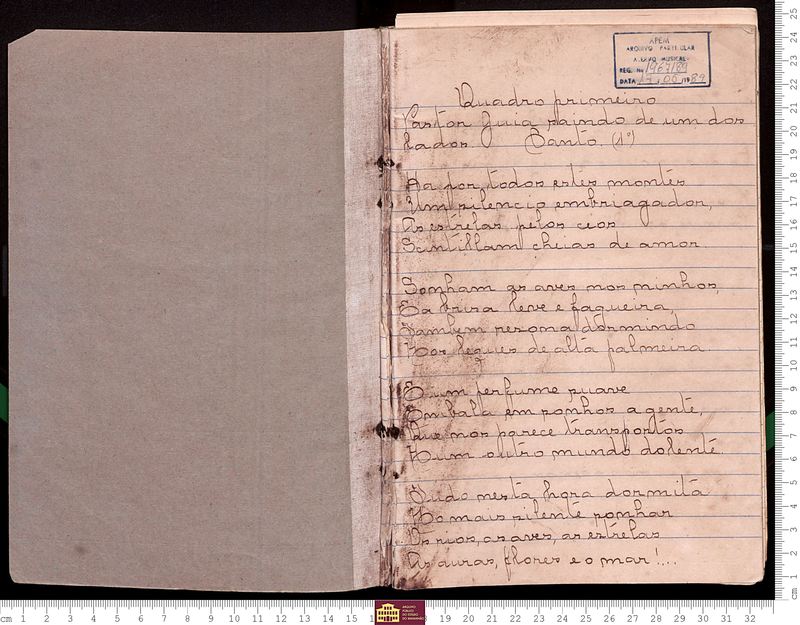 APEM
ARQUIVO PARTICULAR
ACERVO MUSICAL
REG. Nº 1967/89
DATA 17, 06, 1989
Quadro primeiro
Pastor Guia saindo de um dos
lados Canto. (1º)
Ha por todos estes montes
Um silencio embriagador,
As estrelas pelos ceos
Scintillam cheias de amor.
Sonham as aves nos ninhos,
E a brisa leve e fagueira,
Tambem resona dormindo
Nos leques de alta palmeira
E um perfume suave
Embala em sonhos a gente,
Que nos parece transportos
N um outro mundo dolente.
Tudo nesta hora dormita
No mais silente sonhar
Os rios, as aves, as estrelas
As auras, flores e o mar!...
ARQUIVO
PÚBLICO
DO ESTADO
DO MARANHÃO